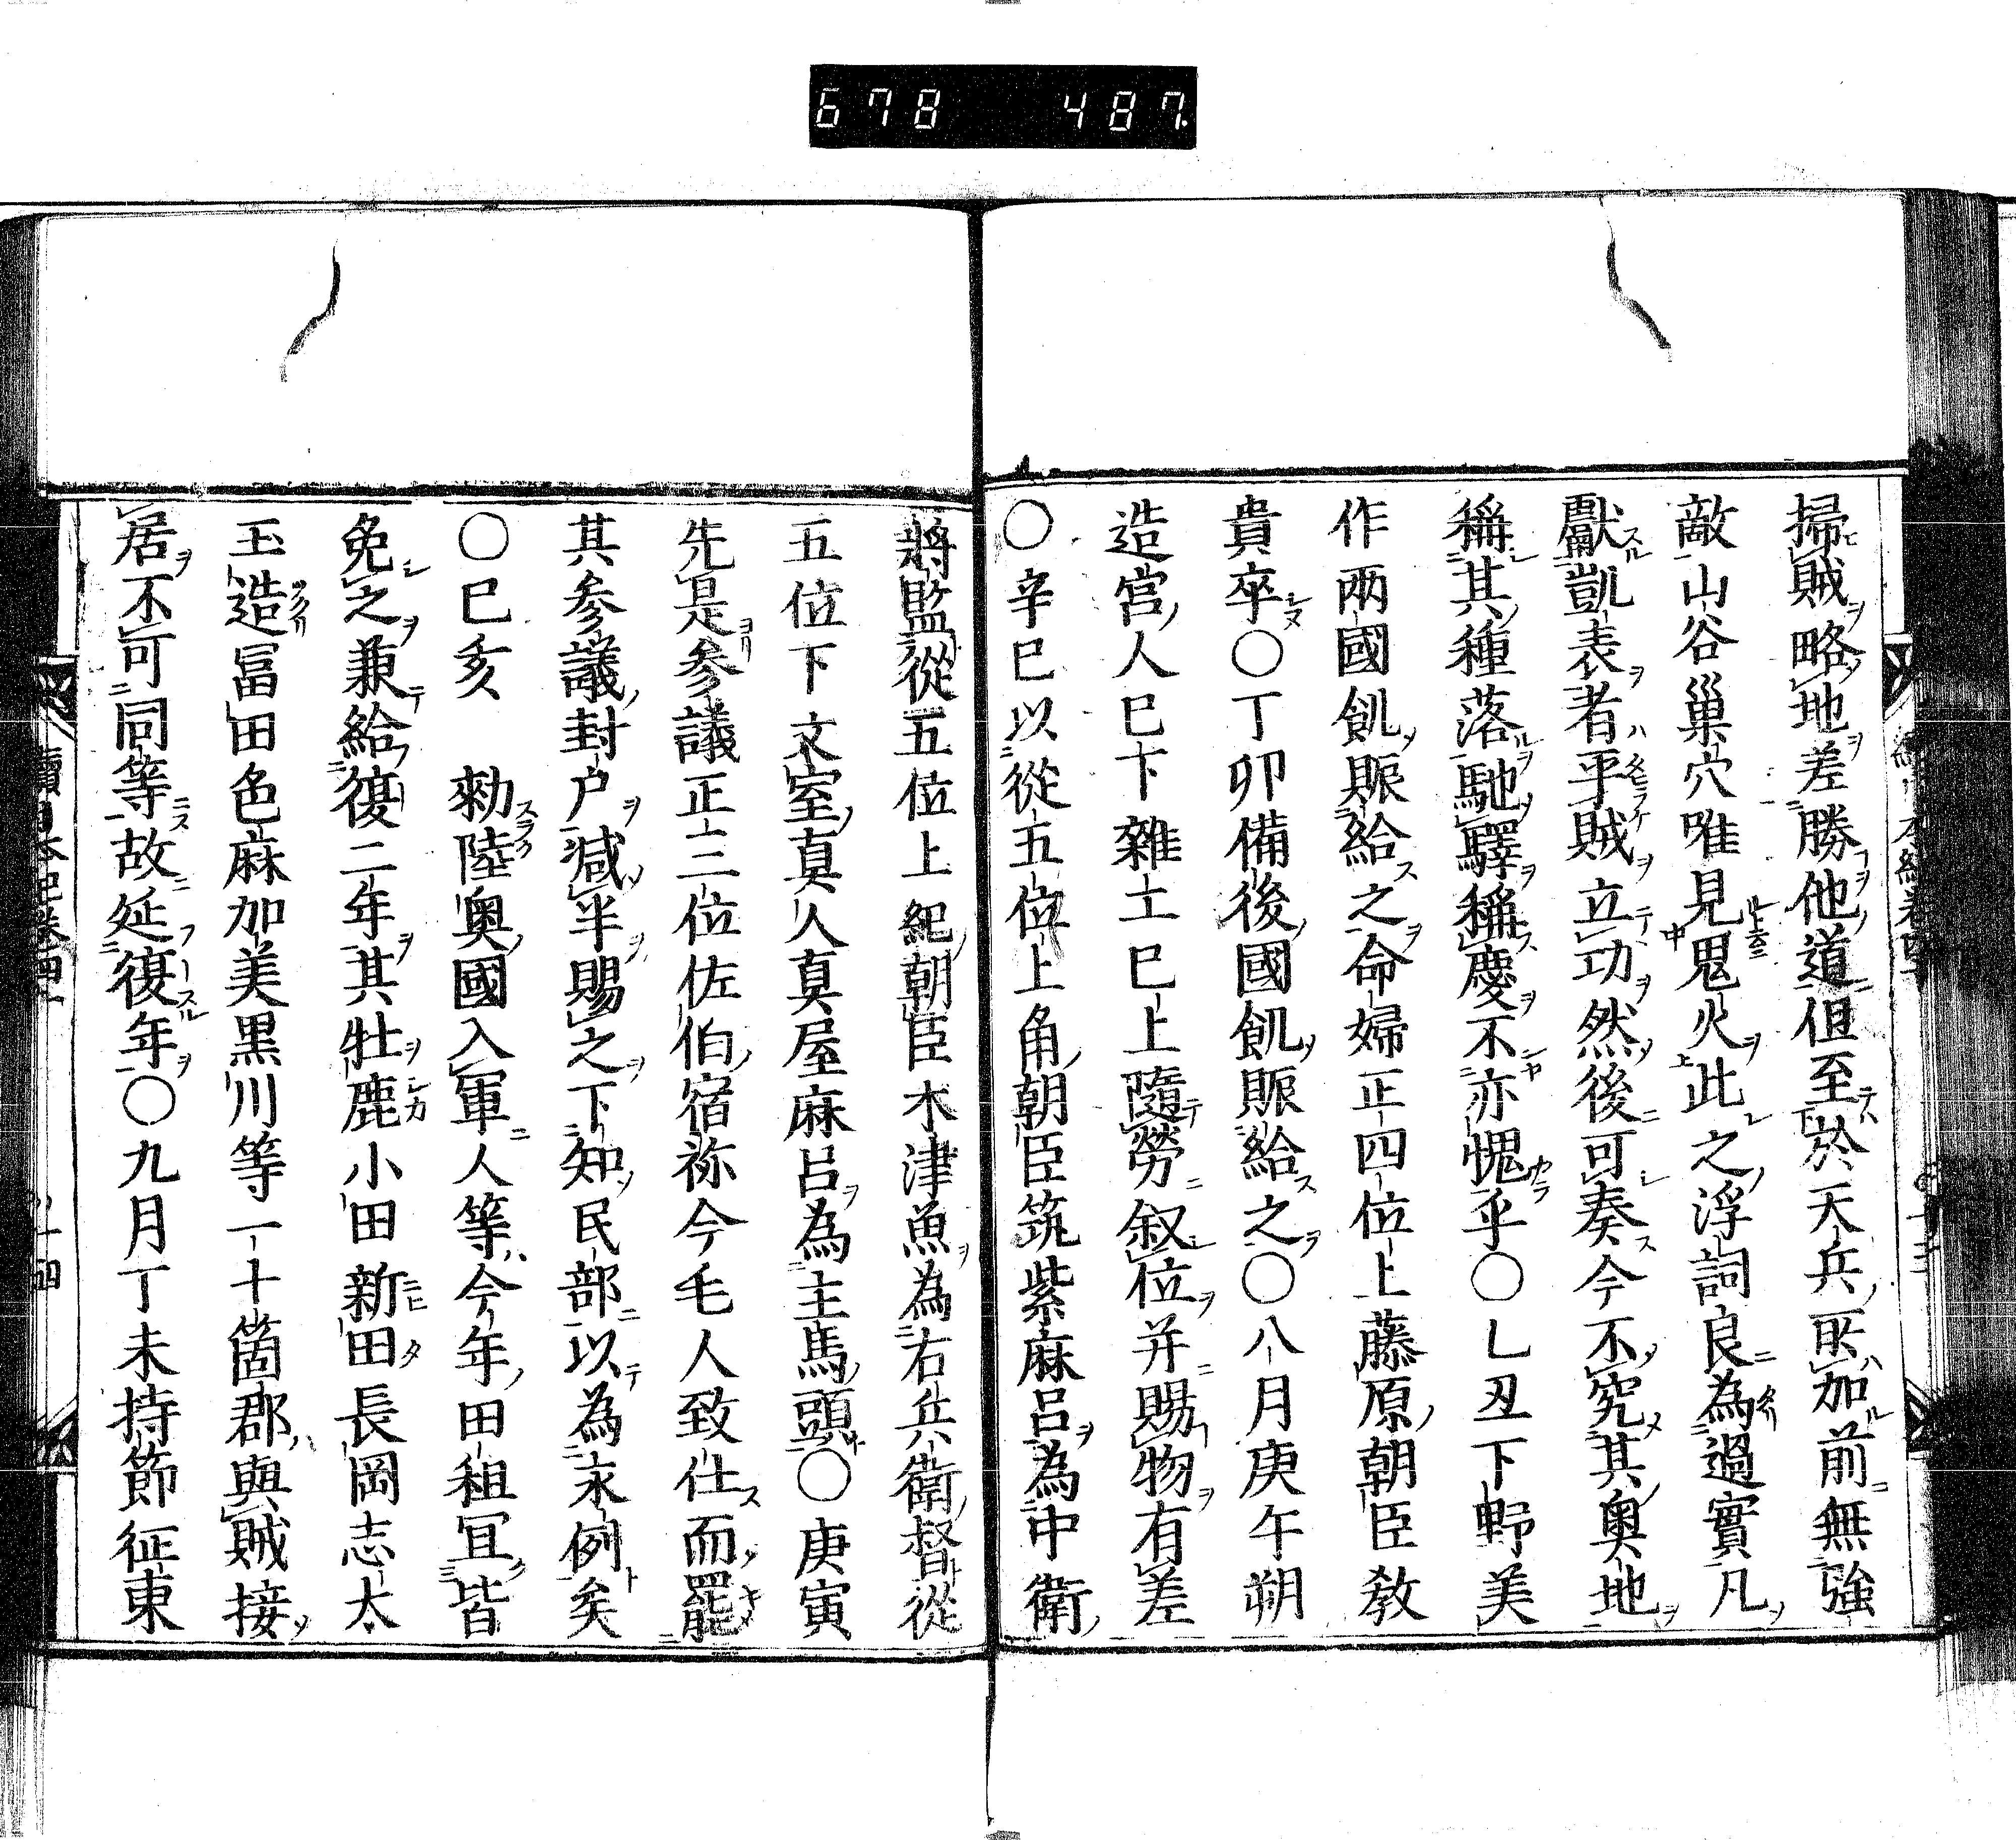 678 487
掃賊略地差勝他道但至於天兵所加前無強
敵山谷巢穴唯見鬼火此之浮詞良為過實凡
獻凱表者平賊立功然後可奏今不究其奥地
稱其種落馳驛稱慶不亦愧乎〇乚丑下野美
作兩國飢賑給之命婦正四位上藤原朝臣教
貴卒〇丁卯備後國飢賑給之〇八月庚午朔
造宮人巳下雜士巳上隨勞叙位并賜物有差
〇辛巳以從五位上角朝臣筑紫麻呂為中衛
將監從五位上紀朝臣木津魚為右兵衛督從
五位下文室真人真屋麻呂為主馬頭〇庚寅
先是参議正三位佐伯宿祢今毛人致仕而罷
其参議封户減半賜之下知民部以為永例矣
〇巳亥 勑陸奥國入軍人等今年田租冝皆
免之兼給復二年其牡鹿小田新田長岡志太
玉造冨田色麻加美黒川等一十箇郡與賊接
居不可同等故延復年〇九月丁未持節征東
續日本紀卷四十